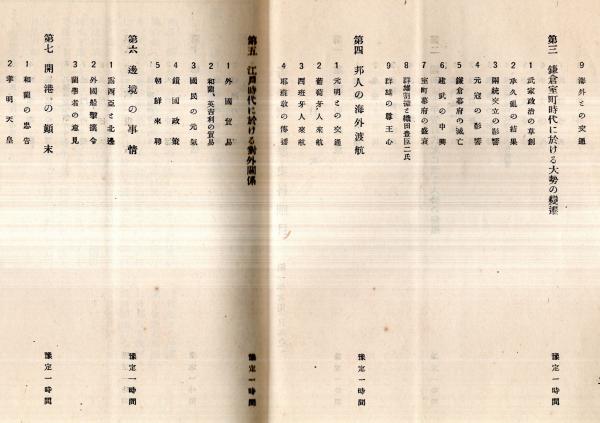 9 海外との交通
第三 鎌倉室町時代に於ける大勢の變遷
1 武家政治の草創
2 承久亂の結果
3 兩統交立の影響
4 元寇の影響
5 鎌倉幕府の滅亡
6 建武の中興
7 室町幕府の盛衰
8 群雄割據と織田豊臣二氏
9 群雄の尊王心
豫定一時間
第四 邦人の海外渡航
1 元明との交通
2 葡萄牙人來航
3 西班牙人來航
4 耶蘇敎の傳播
豫定一時間
第五 江戸時代に於ける對外關係
1 外國貿易
2 和蘭、英吉利の貿易
3 國民の元氣
4 鎖國政策
5 朝鮮來聘
豫定一時間
第六 邊境の事情
1 露西亞と北邊
2 外國船擊攘令
3 蘭學者の意見
豫定一時間
第七 開港の顚末
1 和蘭の忠告
2 孝明天皇
豫定一時間